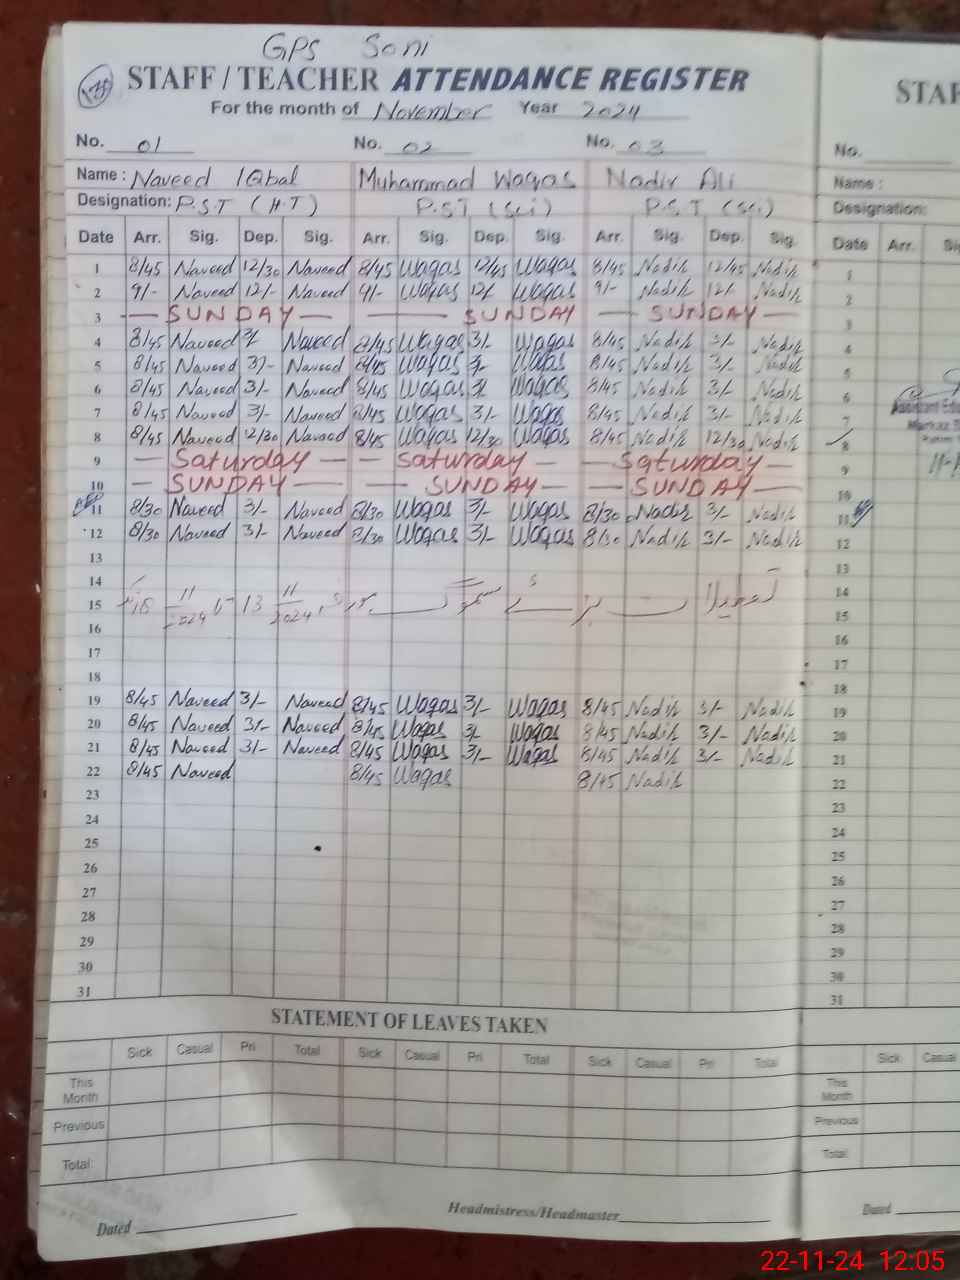 GPS Soni
STAFF / TEACHER ATTENDANCE REGISTER
For the month of November Year 2024
No. 01 No. 02 No. 03
Name : Naveed Iqbal Muhammad Waqas Nadir Ali
Designation: P.S.T (H.T) P.S.T (Sci) P.S.T (Sci)
Date Arr. Sig. Dep. Sig. Arr. Sig. Dep. Sig. Arr. Sig. Dep. Sig.
1 8/45 Naveed 12/30 Naveed 8/45 Waqas 12/45 Waqas 8/45 Nadir 12/45 Nadir
2 9/- Naveed 12/- Naveed 9/- Waqas 12/- Waqas 9/- Nadir 12/- Nadir
3 — SUNDAY — — SUNDAY — SUNDAY —
4 8/45 Naveed 3/- Naveed 8/45 Waqas 3/- Waqas 8/45 Nadir 3/- Nadir
5 8/45 Naveed 3/- Naveed 8/45 Waqas 3/- Waqas 8/45 Nadir 3/- Nadir
6 8/45 Naveed 3/- Naveed 8/45 Waqas 3/- Waqas 8/45 Nadir 3/- Nadir
7 8/45 Naveed 3/- Naveed 8/45 Waqas 3/- Waqas 8/45 Nadir 3/- Nadir
8 8/45 Naveed 12/30 Naveed 8/45 Waqas 12/30 Waqas 8/45 Nadir 12/30 Nadir
9 — Saturday — — Saturday — — Saturday —
10 — SUNDAY — — SUNDAY — — SUNDAY —
11 8/30 Naveed 3/- Naveed 8/30 Waqas 3/- Waqas 8/30 Nadir 3/- Nadir
12 8/30 Naveed 3/- Naveed 8/30 Waqas 3/- Waqas 8/30 Nadir 3/- Nadir
13
14
15 تعطیلات برائے سموگ 13 11/2024 11/2024
16
17
18
19 8/45 Naveed 3/- Naveed 8/45 Waqas 3/- Waqas 8/45 Nadir 3/- Nadir
20 8/45 Naveed 3/- Naveed 8/45 Waqas 3/- Waqas 8/45 Nadir 3/- Nadir
21 8/45 Naveed 3/- Naveed 8/45 Waqas 3/- Waqas 8/45 Nadir 3/- Nadir
22 8/45 Naveed 8/45 Waqas 8/45 Nadir
23
24
25
26
27
28
29
30
31
STATEMENT OF LEAVES TAKEN
Sick Casual Pri Total Sick Casual Pri Total Sick Casual Pri Total
This Month
Previous
Total:
Dated Headmistress/Headmaster
No.
Name :
Designation:
Date Arr.
1
2
3
4
5
6
7
8
9
10
11
12
13
14
15
16
17
18
19
20
21
22
23
24
25
26
27
28
29
30
31
Sick
This Month
Previous
Total
Dated
22-11-24 12:05